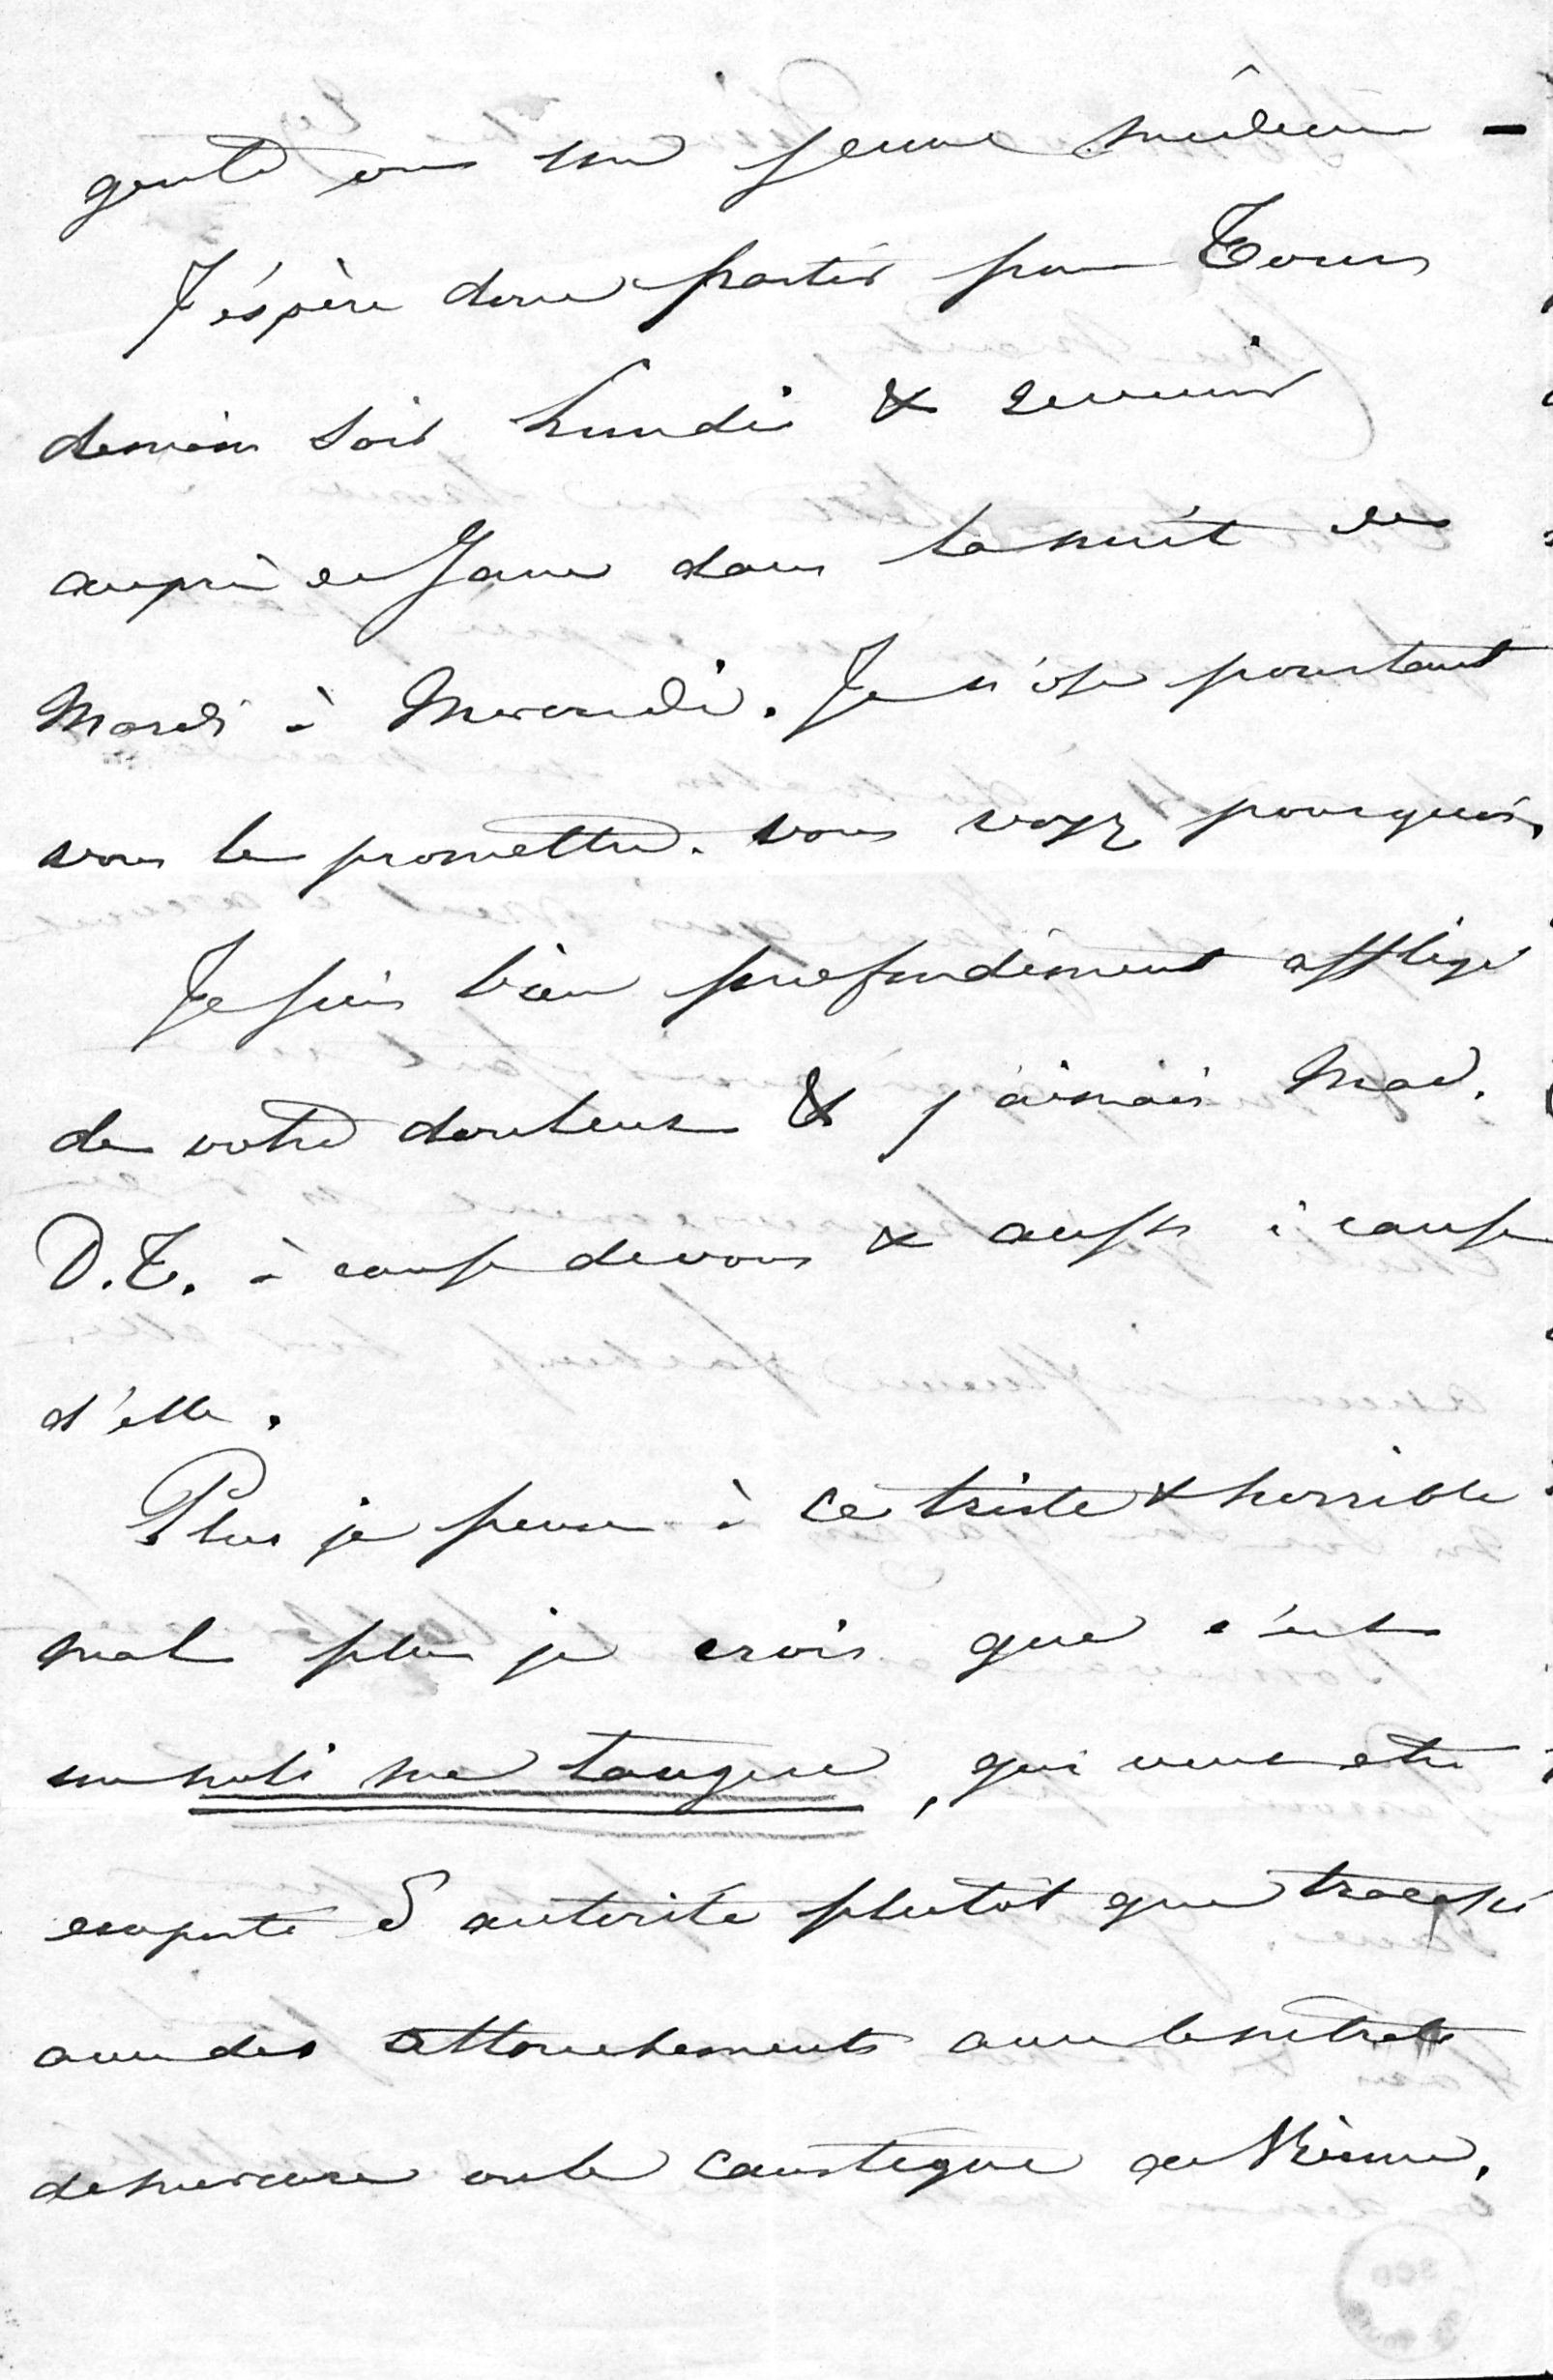 gente ou un jeune médecin -
J'éspère donc partir pour Tours
demain soir lundi & revenir
auprès de Jane dans la nuit de
Mardi à Mercredi. Je n'ose pourtant
vous le promettre. vous voyez pourquoi,
Je suis bien profondément affligé
de votre douleur & j'aimais Mad.
D.T. à cause de vous & aussi à cause
d'elle.
Plus je pense à ce triste & horrible
mal plus je crois que c'est
un noli me tangere, qui veut etre
emporté d'autorité plutôt que tracassé
avec des attouchements avec le nitrate
de mercure ou le caustique de Vienne.